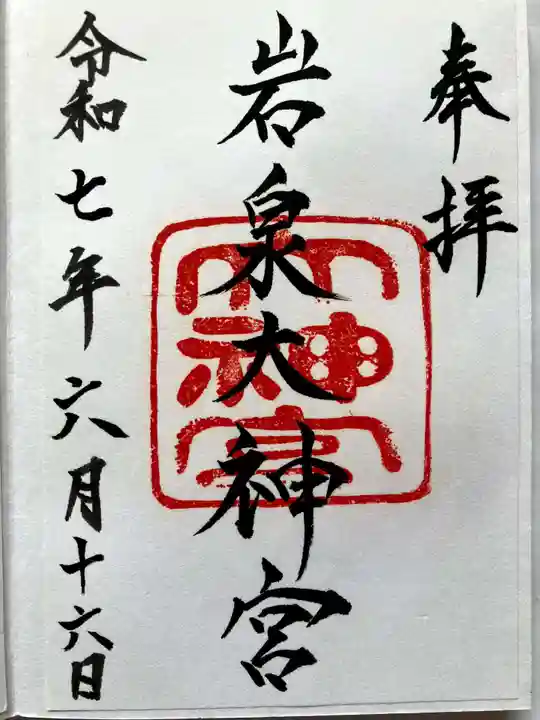 奉拝
岩泉大神宮
大神宮
令和七年六月十六日